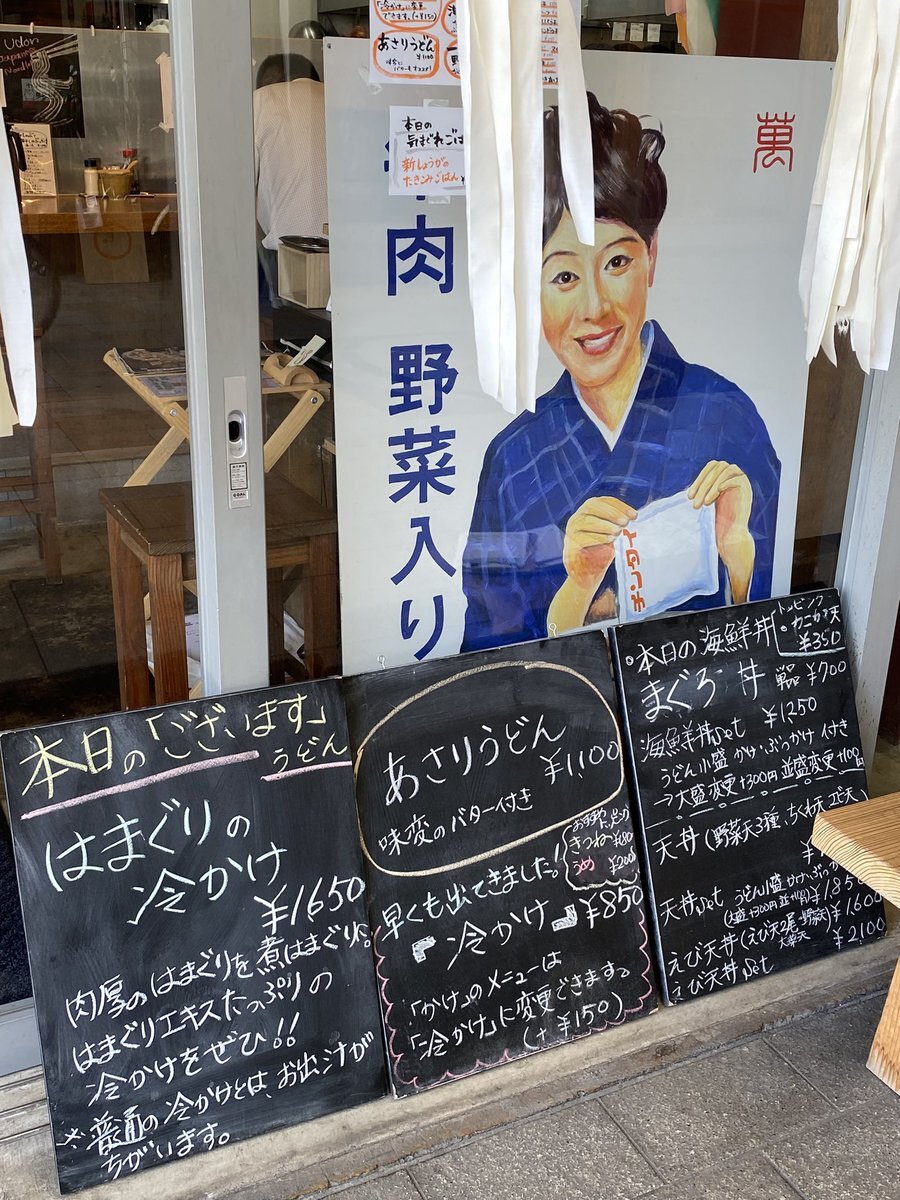 Udon
Japanese
Noodle
「冷かけ」に変更
できます。(+¥150)
あさりうどん
¥1100
本日の
気まぐれごは
新しょうがの
たきこみごはん
肉
野菜入り
萬
本日の「ございます」
うどん
はまぐりの
冷かけ
¥1650
肉厚のはまぐりを煮はまぐりに。
はまぐりエキスたっぷりの
冷かけをぜひ!!
※普通の冷かけとは、お出汁が
ちがいます。
あさりうどん
¥1,100
味変のバター付き
早くも出てきました!
きつね ¥180
うめ ¥200
「冷かけ」¥850
「かけ」のメニューは
「冷かけ」に変更できます。
(+¥150)
トッピング
・カニカマ天
¥350
・本日の海鮮丼
まぐろ丼 単品 ¥700
海鮮丼set ¥1250
うどん小盛 かけ・ぶっかけ 付き
→大盛変更+300円 並盛変更+100円
天丼(野菜天3種、ちくわ天、エビ天)
天丼set うどん小盛 かけ・ぶっかけ
(大盛+300円 並+100円) ¥1850
えび天丼(えび天2尾・野菜天) ¥1,600
えび天丼set ¥2,100